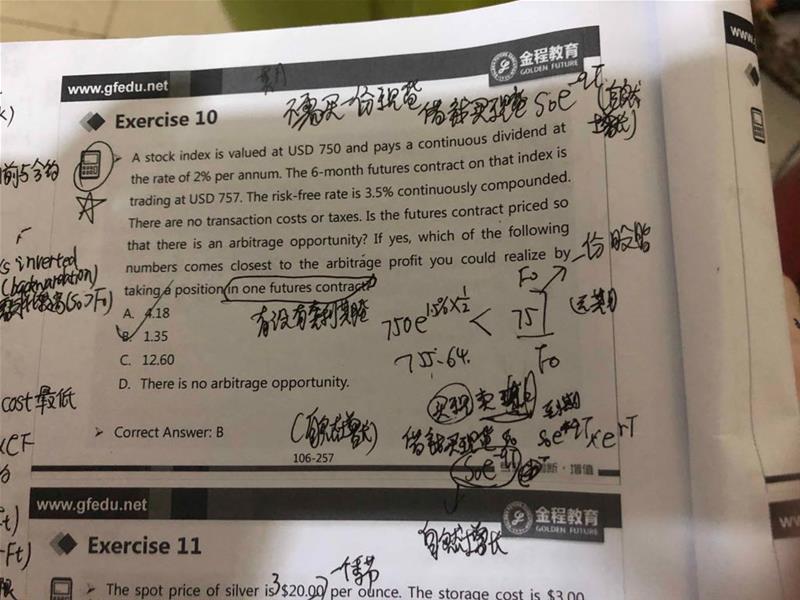 www.gfedu.net
金程教育
GOLDEN FUTURE
Exercise 10
不需买一份现货
借钱买现货 S₀e^-qT
(自然增长)
A stock index is valued at USD 750 and pays a continuous dividend at
the rate of 2% per annum. The 6-month futures contract on that index is
trading at USD 757. The risk-free rate is 3.5% continuously compounded.
There are no transaction costs or taxes. Is the futures contract priced so
that there is an arbitrage opportunity? If yes, which of the following
numbers comes closest to the arbitrage profit you could realize by
taking a position in one futures contract?
A. 4.18
B. 1.35
C. 12.60
D. There is no arbitrage opportunity.
有没有套利策略
750e^1.5%×1/2 < 757
F₀
一份股指
755.64
F₀
Correct Answer: B
(自然增长)
借钱买现货 S₀
S₀e^-qT
106-257
增值
自然增长
s inverted
(backwardation)
(S₀>F₀)
cost 最低
www.gfedu.net
金程教育
GOLDEN FUTURE
Exercise 11
一个季节
The spot price of silver is $20.00 per ounce. The storage cost is $3.00
www